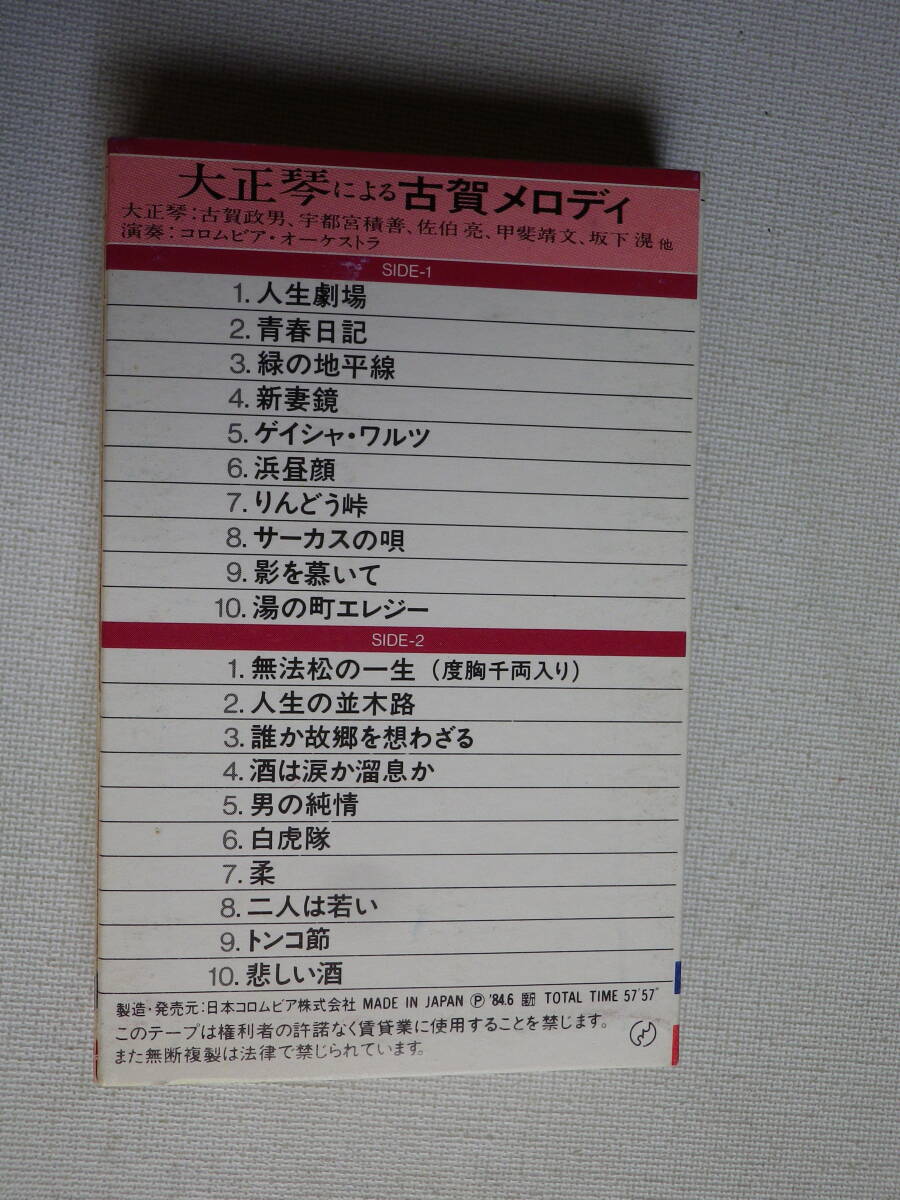 大正琴による古賀メロディ
大正琴:古賀政男、宇都宮積善、佐伯亮、甲斐靖文、坂下滉 他
演奏:コロムビア・オーケストラ
SIDE-1
1. 人生劇場
2. 青春日記
3. 緑の地平線
4. 新妻鏡
5. ゲイシャ・ワルツ
6. 浜昼顔
7. りんどう峠
8. サーカスの唄
9. 影を慕いて
10. 湯の町エレジー
SIDE-2
1. 無法松の一生(度胸千両入り)
2. 人生の並木路
3. 誰か故郷を想わざる
4. 酒は涙か溜息か
5. 男の純情
6. 白虎隊
7. 柔
8. 二人は若い
9. トンコ節
10. 悲しい酒
製造・発売元:日本コロムビア株式会社 MADE IN JAPAN Ⓟ '84.6 TOTAL TIME 57'57"
このテープは権利者の許諾なく賃貸業に使用することを禁じます。
また無断複製は法律で禁じられています。